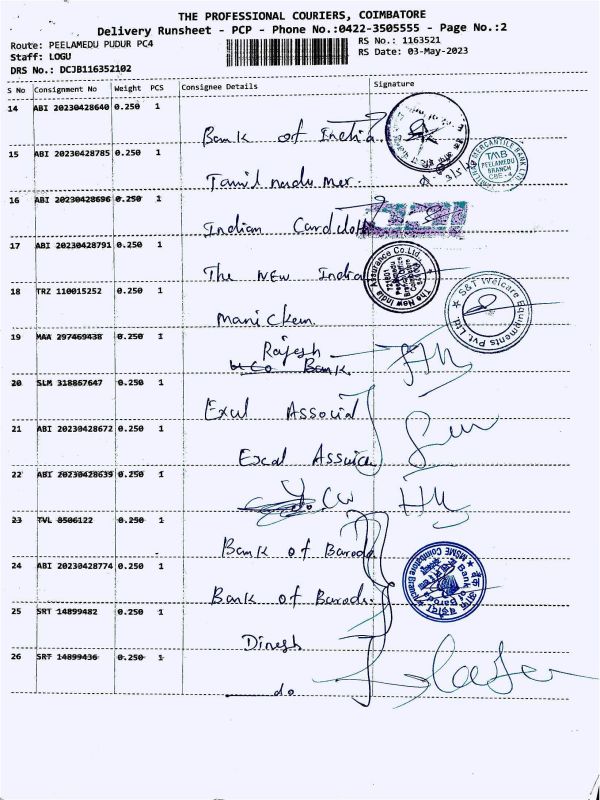 THE PROFESSIONAL COURIERS, COIMBATORE
Delivery Runsheet - PCP - Phone No.:0422-3505555 - Page No.:2
Route: PEELAMEDU PUDUR PC4
Staff: LOGU
DRS No.: DCJB116352102
RS No.: 1163521
RS Date: 03-May-2023
S No Consignment No Weight PCS Consignee Details Signature
14 ABI 20230428640 0.250 1
Bank of India
15 ABI 20230428785 0.250 1
Tamil nadu mer.
TMB
PEELAMEDU
BRANCH
CBE-4
16 ABI 20230428696 0.250 1
Indian
17 ABI 20230428791 0.250 1
The New India
The New India Assurance Co.Ltd.
721601
18 TRZ 110015252 0.250 1
Manicken
S&T Welcare Equipments Pvt. Ltd.
19 MAA 297469438 0.250 1
Rajesh
Bank.
20 SLM 318867647 0.250 1
21 ABI 20230428672 0.250 1
22 ABI 20230428639 0.250 1
23 TVL 8506122 0.250 1
Bank of Baroda
24 ABI 20230428774 0.250 1
Bank of Baroda.
Bank of Baroda
MSME Coimbatore Branch
25 SRT 14899482 0.250 1
Dinesh
26 SRT 14899436 0.250 1
do